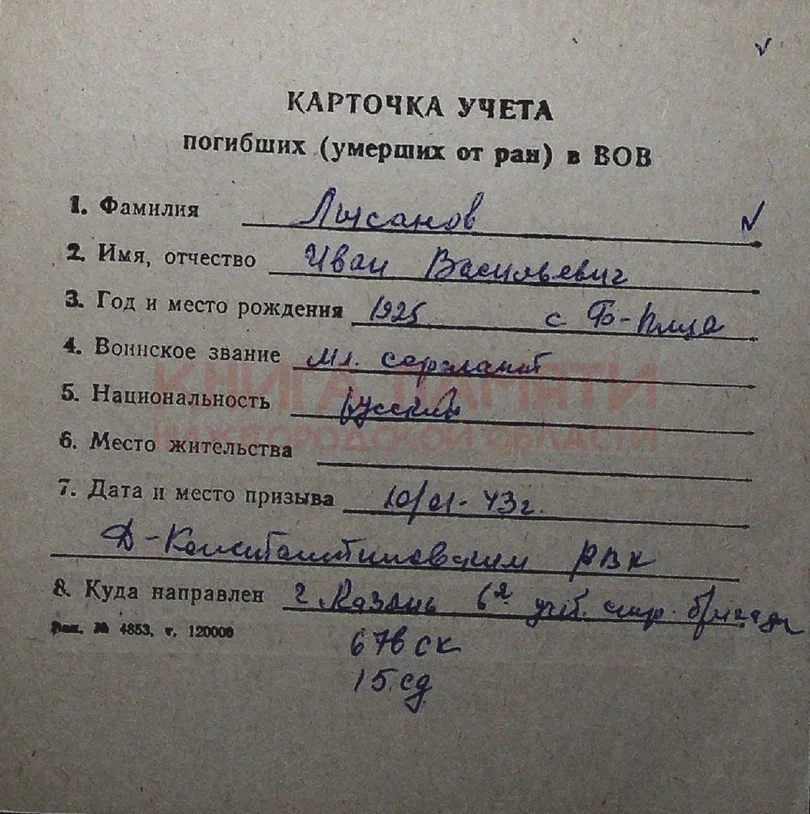 КАРТОЧКА УЧЕТА
погибших (умерших от ран) в ВОВ
1. Фамилия Лысанов
2. Имя, отчество Иван Васильевич
3. Год и место рождения 1925 с Б-Пица
4. Воинское звание мл. сержант
5. Национальность русский
КНИГА ПАМЯТИ
НИЖЕГОРОДСКОЙ ОБЛАСТИ
6. Место жительства
7. Дата и место призыва 10/01-43г.
Д-Константиновским РВК
8. Куда направлен г. Казань 6я учб. стр. бригада
Зак. № 4853, т. 120000
676 ск
15 сд